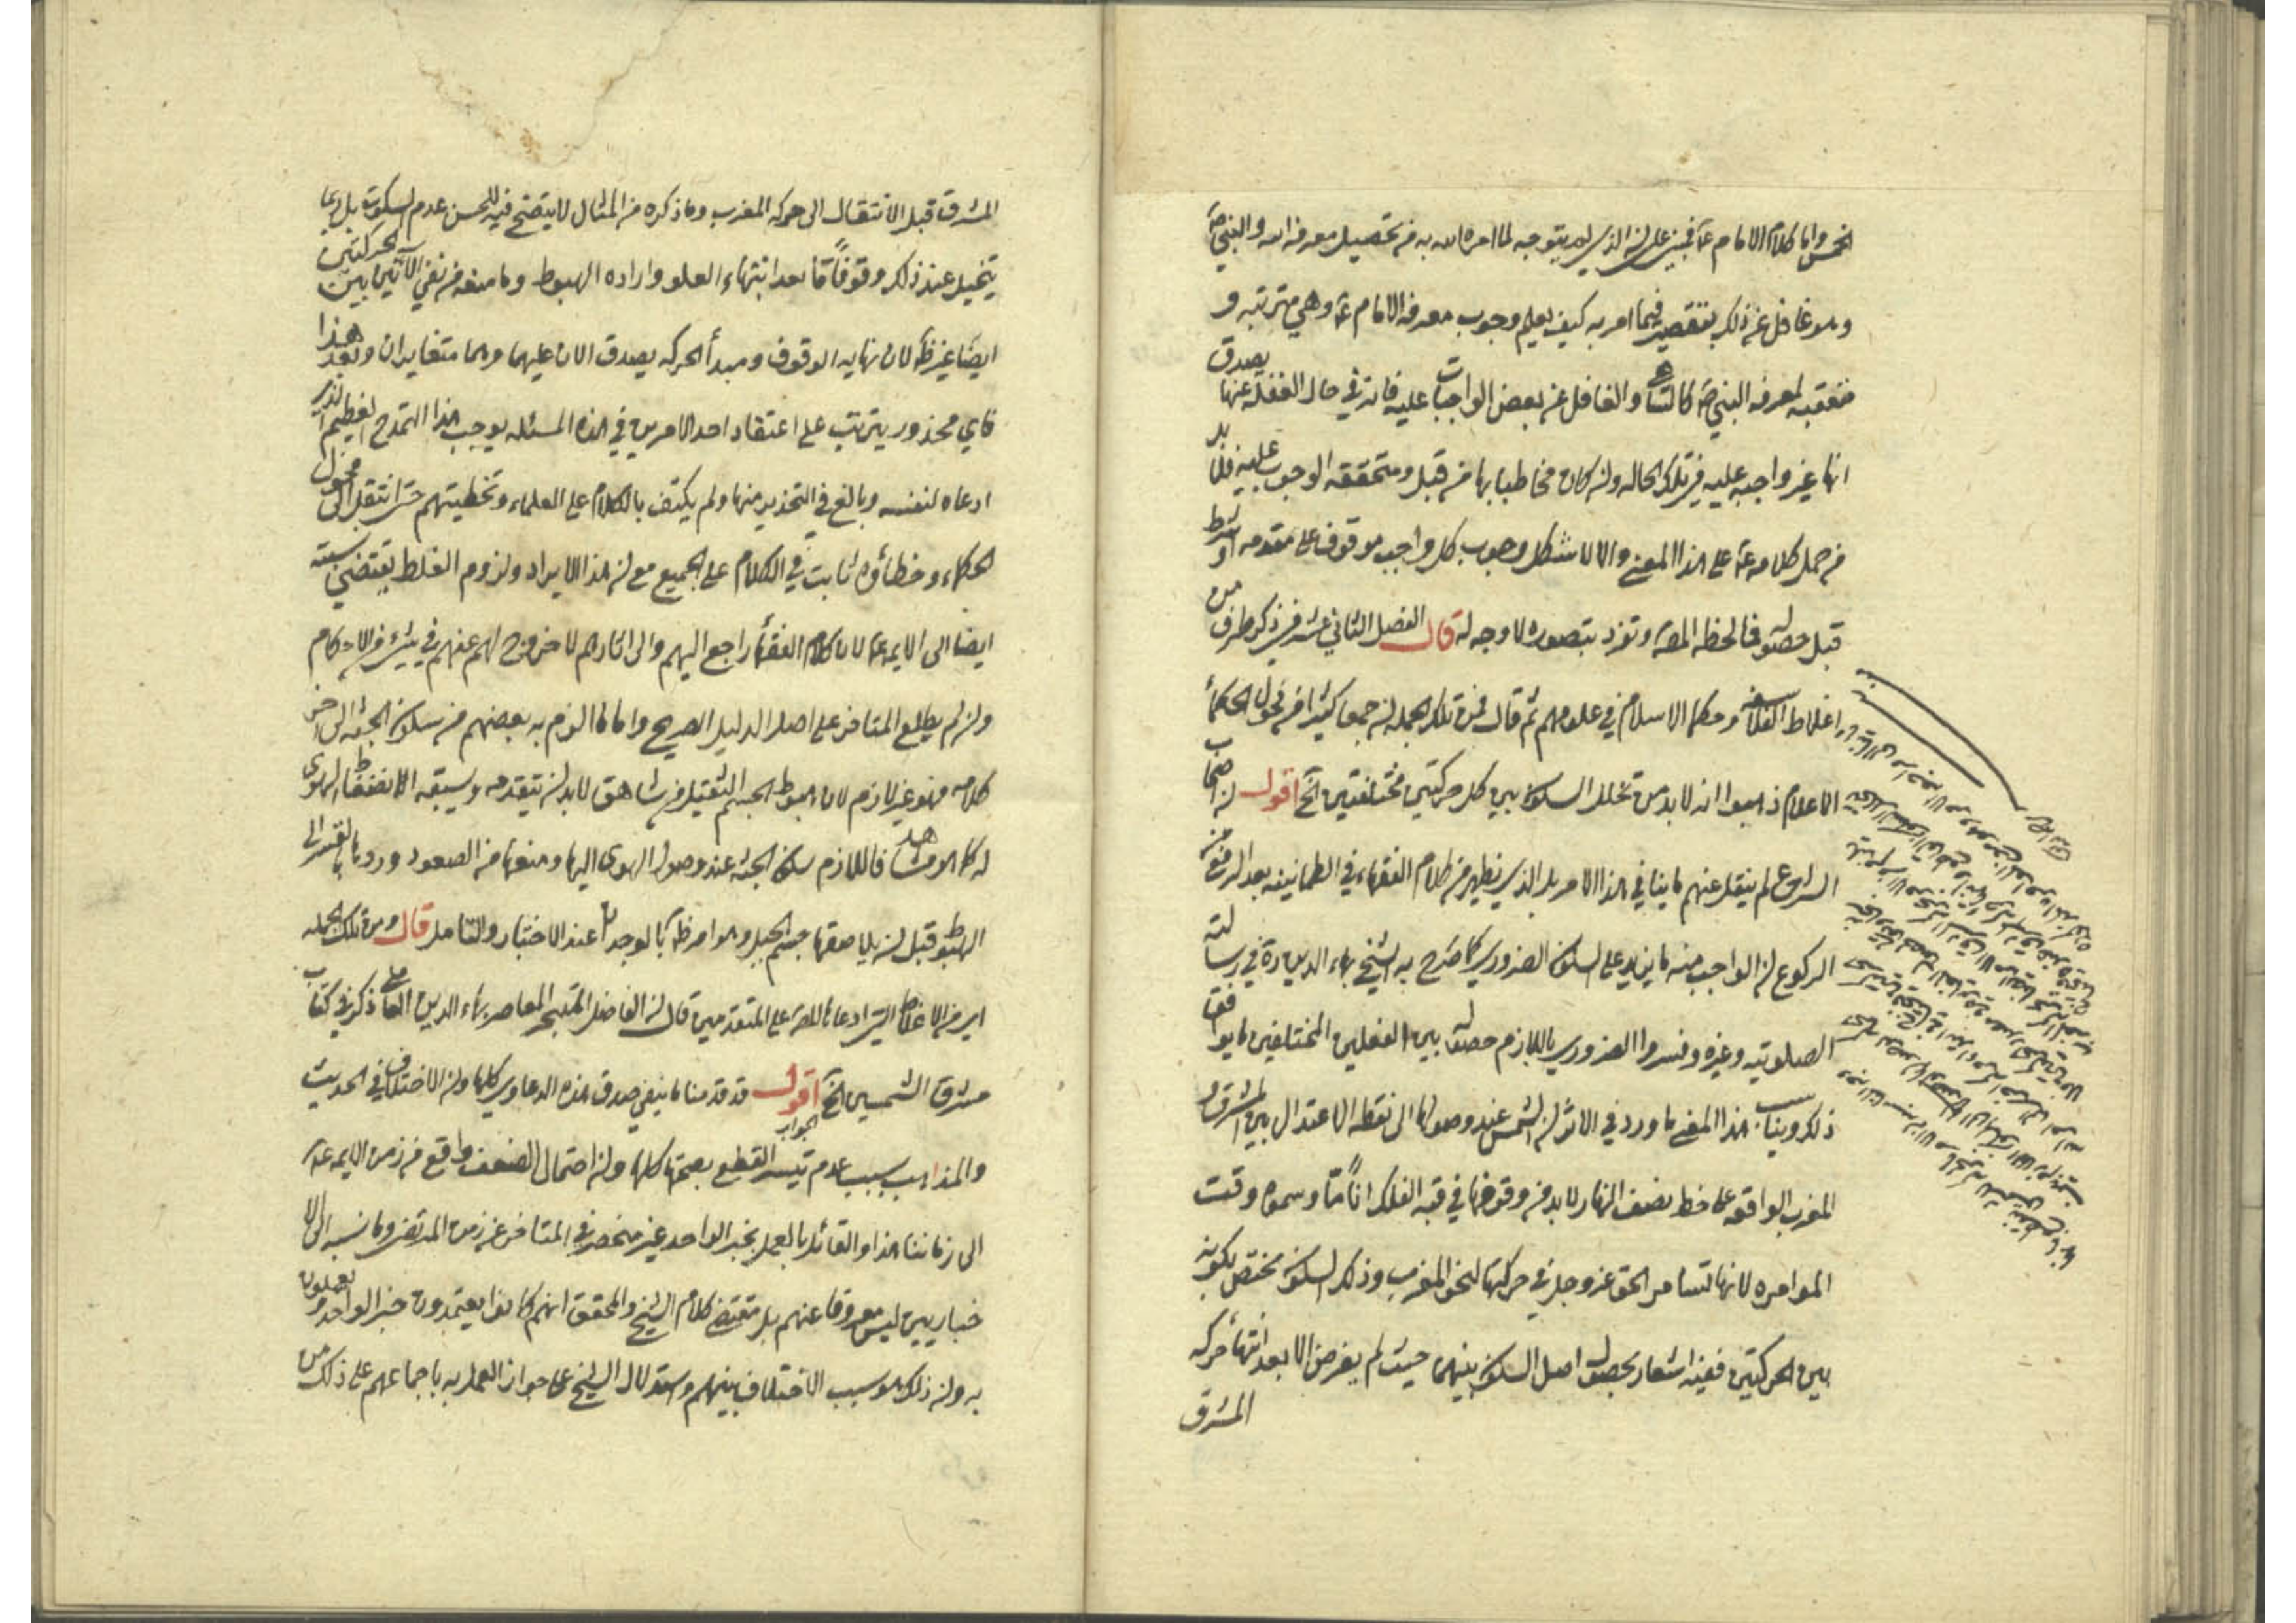 الخمس واما كلام الامام عم فمبني على ان الذي لم يتوجه لما امره الله به من تحصيل معرفة الله والنبي ص
وهو غافل عن ذلك بتقصير فيما امر به كيف يعلم وجوب معرفة الامام عم وهي مترتبه و
متعقبه لمعرفه النبي ص كالساهي والغافل عن بعض الواجبات عليه فانه في حال الغفله عنها يصدق
انها غير واجبه عليه في تلك الحاله وان كان مخاطبا بها من قبل ومتحققه الوجوب عليه فلا بد
من حمل كلامه عم على هذا المعنى والا لاشكل وجوب كل واجب موقوف على مقدمه او شرط
قبل حصوله فما لحظه المص وتفرد بتصوره لا وجه له قال الفصل الثاني عشر في ذكر طرف من
اغلاط الفلاسفه وحكما الاسلام في علومهم ثم قال فمن تلك الجمله ان جمعا كثيرا من فحول الحكماء
الاعلام ذهبوا انه لا بد من تخلل السكون بين كل حركتين مختلفتين الخ اقول ان اصحاب
الشرع لم ينقل عنهم ما ينافي هذا الامر بل الذي يظهر من كلام الفقهاء في الطمانينه بعد الرفع من
الركوع ان الواجب منه ما يزيد على السكون الضروري كما صرح به الشيخ بهاء الدين ره في رسالته
الصلوتيه وغيره وفسروا الضروري باللازم حصوله بين الفعلين المختلفين ما يوافق
ذلك ويناسب هذا المعنى ما ورد في الاثر ان الشمس عند وصولها الى نقطه الاعتدال بين المشرق و
المغرب الواقعه على خط نصف النهار لا بد من وقوفها في قبه الفلك انا ما وسموه وقت
الموامره لانها تستامر الحق عز وجل في حركتها لنحو المغرب وذلك السكون مختص بكونه
بين الحركتين ففيه اشعار بحصول اصل السكون بينهما حيث لم يفرض الا بعد انتهاء حركه
المشرق
المشرق قبل الانتقال الى حركه المغرب وما ذكره من المثال لا يتضح فيه للحس عدم السكون بل ربما
يتخيل عند ذلك وقوفا ما بعد انتهاء العلو واراده الهبوط وما منعه من نفي الآنين بين الحركتين
ايضا غير ظ لان نهايه الوقوف ومبدأ الحركه يصدق الان عليهما وهما متغايران وبعد هذا
فاي محذور يترتب على اعتقاد احد الامرين في هذه المسئله يوجب هذا التمدح العظيم الذي
ادعاه لنفسه وبالغ في التحذير منها ولم يكتف بالكلام على العلماء وتخطيتهم حتى انتقل الى فحول
الحكماء وخطأؤه ثابت في الكلام على الجميع مع ان هذا الايراد ولزوم الغلط يقتضي نسبته
ايضا الى الايمه عم لان كلام الفقهاء راجع اليهم والى اثارهم لا خروج لهم عنهم في شيء من الاحكام
وان لم يطلع المتاخر على اصل الدليل الصريح واما ما الزم به بعضهم من سكون الجثه الى اخر
كلامه فهو غير لازم لان هبوط الجسم الثقيل من شاهق لا بد ان يتقدمه ويسبقه الانضغاط الهوى
له كما هو مشاهد فاللازم سكون الجثه عند وصول الهوى اليها ومنعها من الصعود وردها بالقسر الى
الهبوط قبل ان يلاصقها جسم الجبل وهو امر ظ بالوجدان عند الاختبار والتامل قال ومن تلك الجمله
اي من الاغلاط التي ادعاها المص على المتقدمين قال ان الفاضل المتبحر المعاصر بهاء الدين العاملي ذكر في كتاب
مشرق الشمسين الخ اقول قد قدمنا ما ينفي صدق هذه الدعاوي كلها وان الاختلاف في الحديث
والمذاهب بسبب عدم تيسر القطع بصحتها كلها وان احتمال الضعف واقع من زمن الايمه عم
الى زماننا هذا والقائل بالعمل بخبر الواحد غير منحصر في المتاخر عن زمن المرتضى وما نسبه الى الا
خباريين ليس معروفا عنهم بل مقتضى كلام الشيخ والمحقق انهم كانوا يعتمدون خبر الواحد ويعملون
به وان ذلك هو سبب الاختلاف بينهم واستدلال الشيخ على جواز العمل به باجماعهم على ذلك من